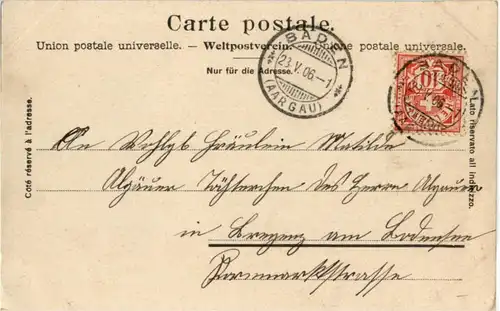 Carte postale.
Union postale universelle. — Weltpostverein. — Unione postale universale.
Nur für die Adresse.
BADEN
23.V.06.–1
(AARGAU)
10
Côté réservé à l'adresse.
Lato riservato all indirizzo.
An Wohlgb Fräulein Matilde
Algäuer Töchterchen des Herrn Algäuer
in Bregenz am Bodensee
Kornmarktstrasse